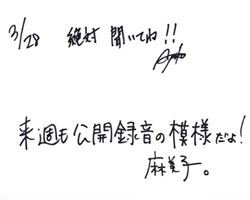 3/28 絶対 聞いてね!!
来週も公開録音の模様だよ!
麻美子。